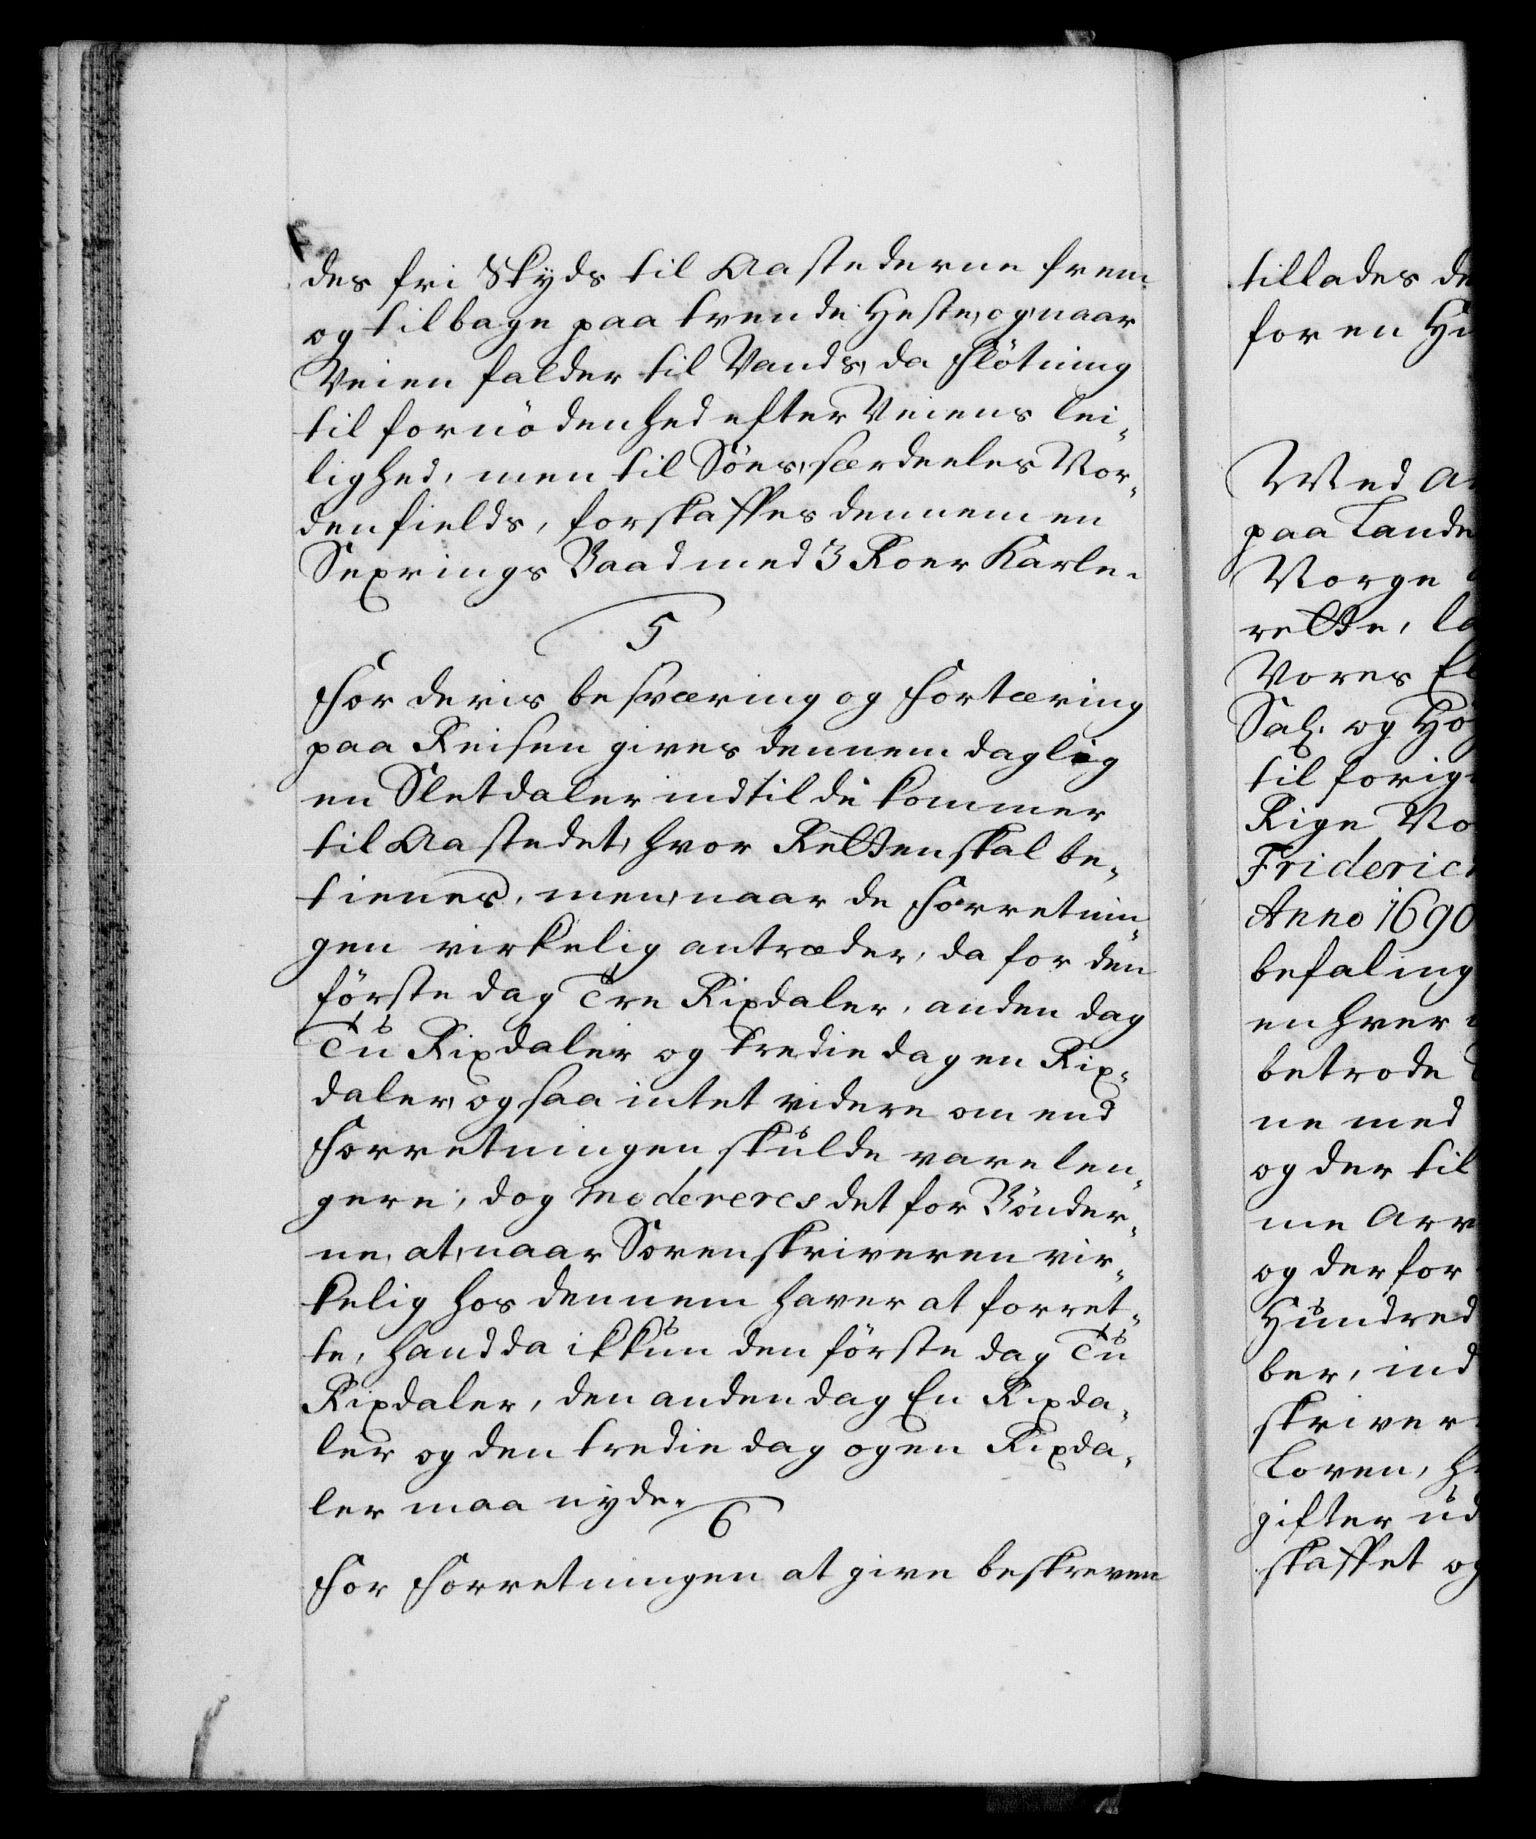 des fri Skyds til Aastederne frem
og tilbage paa trende Heste, og naar
Veien falder til Vands, da Flötning
til fornödenhed efter Veiens lei,,
lighed, men til Söes, særdeeles Nor,,
denfields, forskaffes dennem en
Sexrings Baad med 3 Roer Karle.
5
For deris besværing og Fortæring
paa Reisen gives dennem daglig
en Sletdaler indtil de kommer
til Aastedet, hvor Retten skal be,,
tienes, men, naar de Forretnin,,
gen virkelig antræder, da for den
förste dag Tre Rixdaler, anden dag
Tu Rixdaler og tredie dag en Rix,,
daler, og saa intet videre om end
Forretningen skulde vare len,,
gere; dog modereres det for Bönder,,
ne, at, naar Sorenskriveren vir,,
kelig hos dennem haver at forret,,
te, hand da ikkun den förste dag Tu
Rixdaler, den anden dag En Rixda,,
ler og den tredie dag og en Rixda,,
ler maa nyde.
6
For Forretningen at give beskreven
tillades
for en
Med
paa Lande
Norge
rette,
Vores
Sal. og
til
Rige
Anno 1690
befaling
en hver
betrode
ne med
og der til
me
og derfor
Hundred
ber, ind
skriver
Loven,
gifter
skaffet og